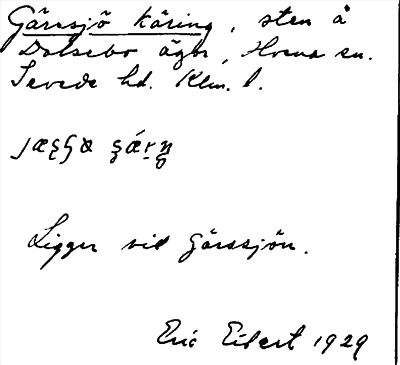 Gårssjö käring, sten å
Dalsebo ägor, Hvena sn.
Sevede hd. Klm. l.
Ligger vid Gårssjön.
Eric Elbert 1929